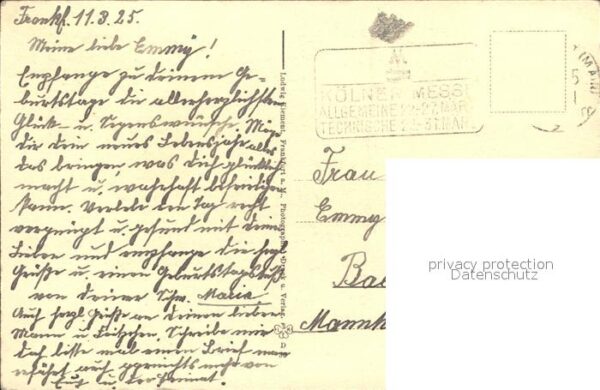 Frankf. 11.3.25.
Meine liebe Emmy!
Empfange zu deinem Ge-
burtstage die allerherzlichsten
Glück- u. Segenswünsche. Möge
dir dein neues Lebensjahr alles
das bringen, was dich glücklich
macht u. wahrhaft befriedigen
kann. Verlebe den Tag recht
vergnügt u. gesund mit deinen
Lieben und empfange die herzl.
Grüße u. einen Geburtstagskuß
von deiner Schw. Maria
Auch herzl. Grüße an deinen lieben
Mann u. Schreibe mir
doch bitte mal einen Brief man
erfährt auf nichts von
Euch u. der Heimat.
Ludwig Klement, Frankfurt a. M., Photograph. Kunst- u. Verlag
KÖLNER MESSE
ALLGEMEINE 22.-27. MÄRZ
TECHNISCHE 22.-31. MÄRZ
Frau
Emmy
Bad
Mannh
privacy protection
Datenschutz